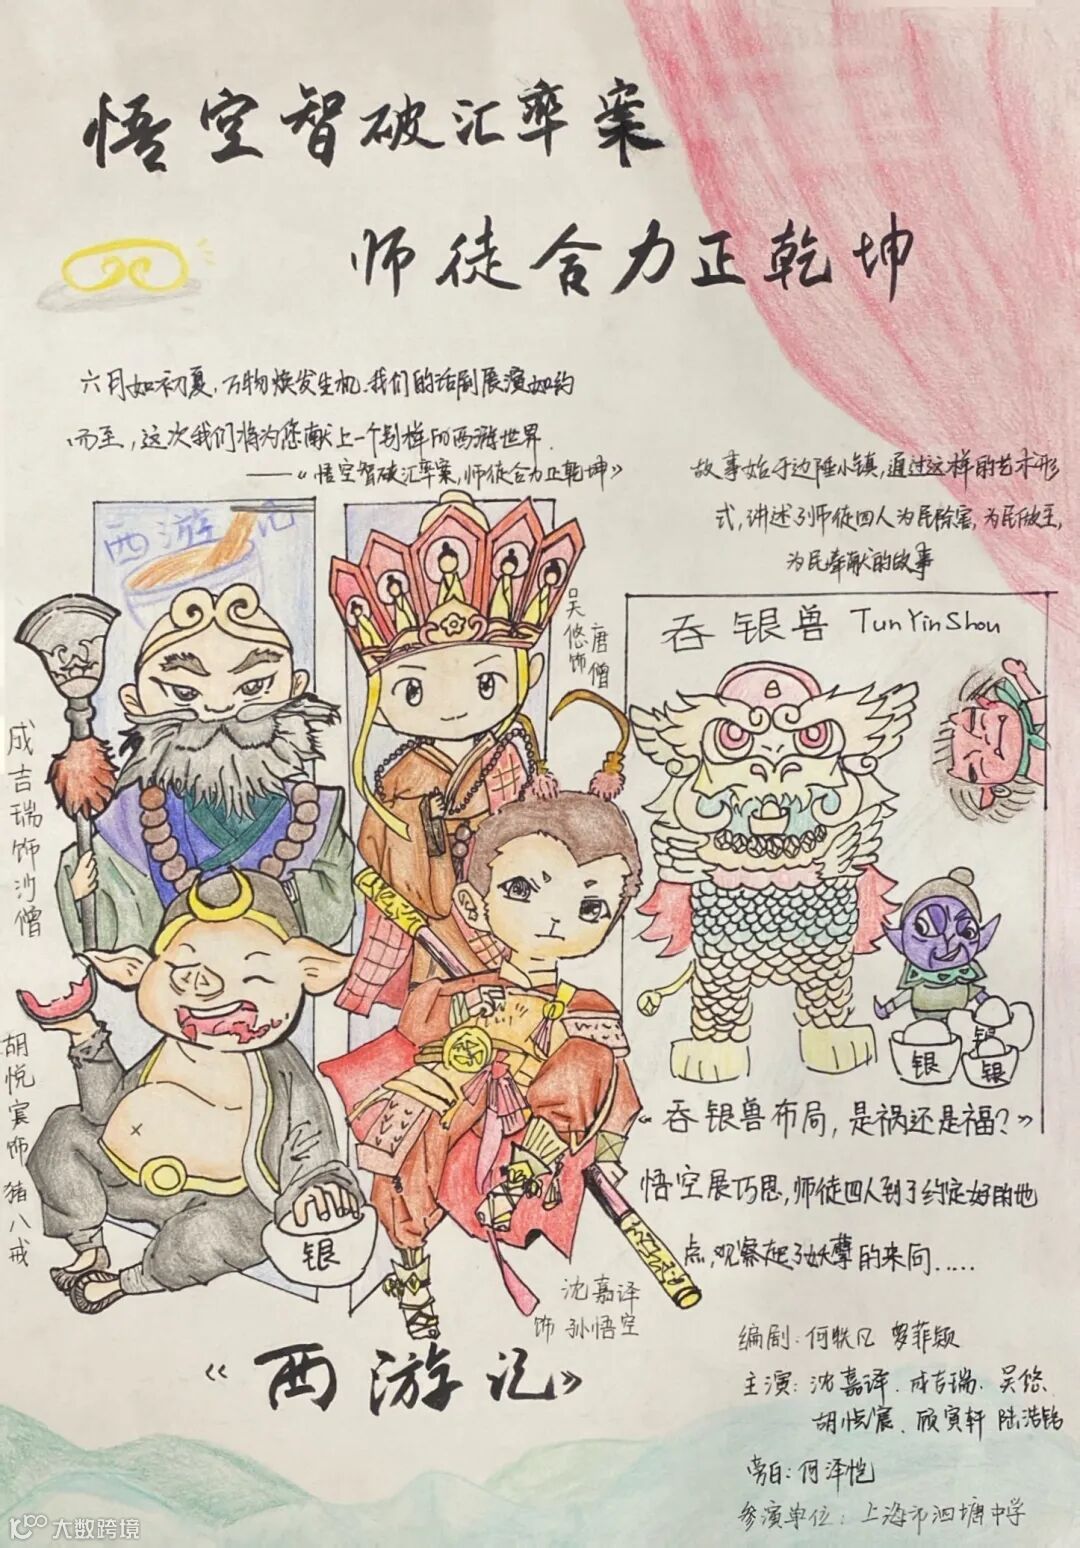 悟空智破汇率案
师徒合力正乾坤
六月如初夏，万物焕发生机，我们的话剧展演如约
而至，这次我们将为您献上一个别样的西游世界.
——《悟空智破汇率案，师徒合力正乾坤》
故事始于边陲小镇，通过这样的艺术形
式，讲述了师徒四人为民除害，为民做主，
为民奉献的故事
西游记
吴悠饰
唐僧
吞银兽 TunYinShou
成吉瑞饰沙僧
胡悦宸饰猪八戒
银
银
银
银
《吞银兽布局，是祸还是福？》
悟空展巧思，师徒四人到了约定好的地
点，观察起了妖孽的来向.....
沈嘉译
饰 孙悟空
《西游记》
编剧：何轶凡 罗菲颖
主演：沈嘉译.成吉瑞.吴悠.
胡悦宸.顾寅轩 陆浩铭
旁白：何泽恺
参演单位：上海市泗塘中学
大数跨境